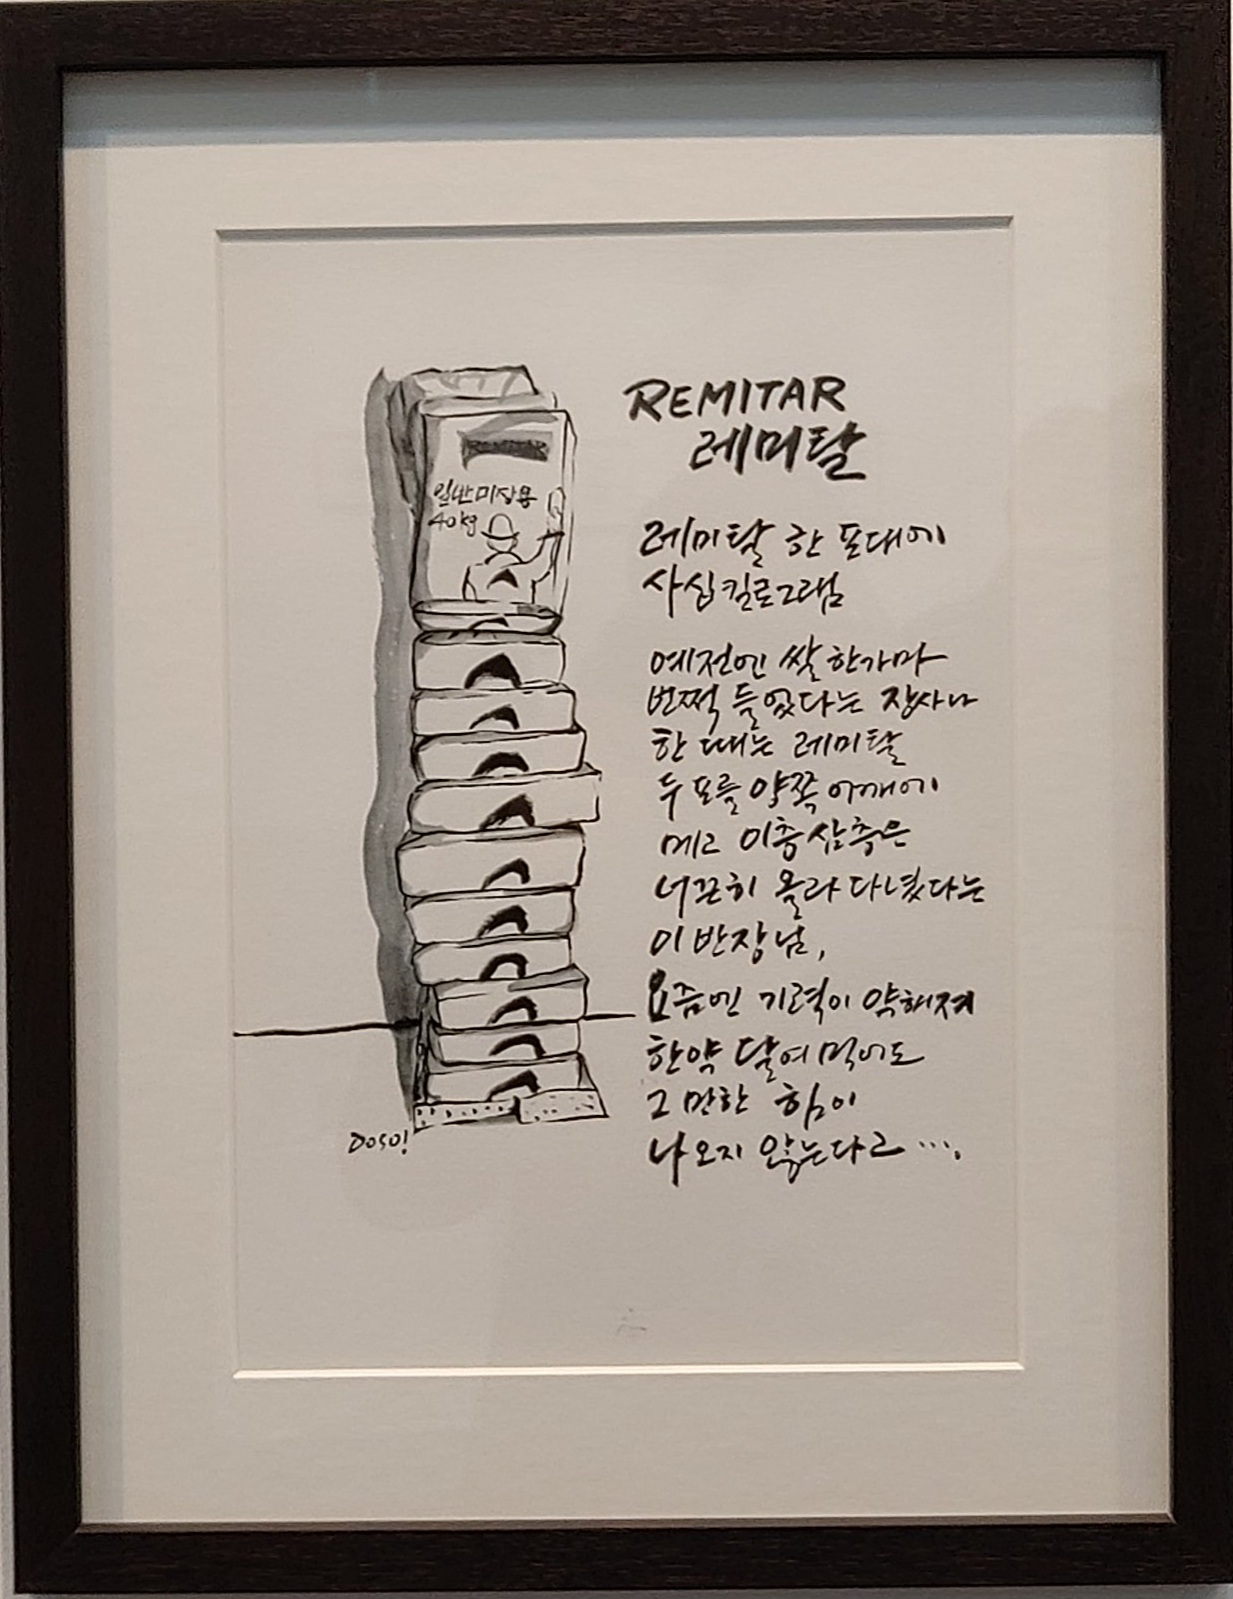 REMITAR
레미탈
REMITAR
일반미장용
40kg
레미탈 한 포대에
사십킬로그램
예전엔 쌀 한가마
번쩍 들었다는 장사나
한 때는 레미탈
두 포를 양쪽 어깨에
메고 이층 삼층은
너끈히 올라 다녔다는
이 반장님,
요즘엔 기력이 약해져
한약 달여 먹어도
그 만한 힘이
나오지 않는다고 ….
DOSO!